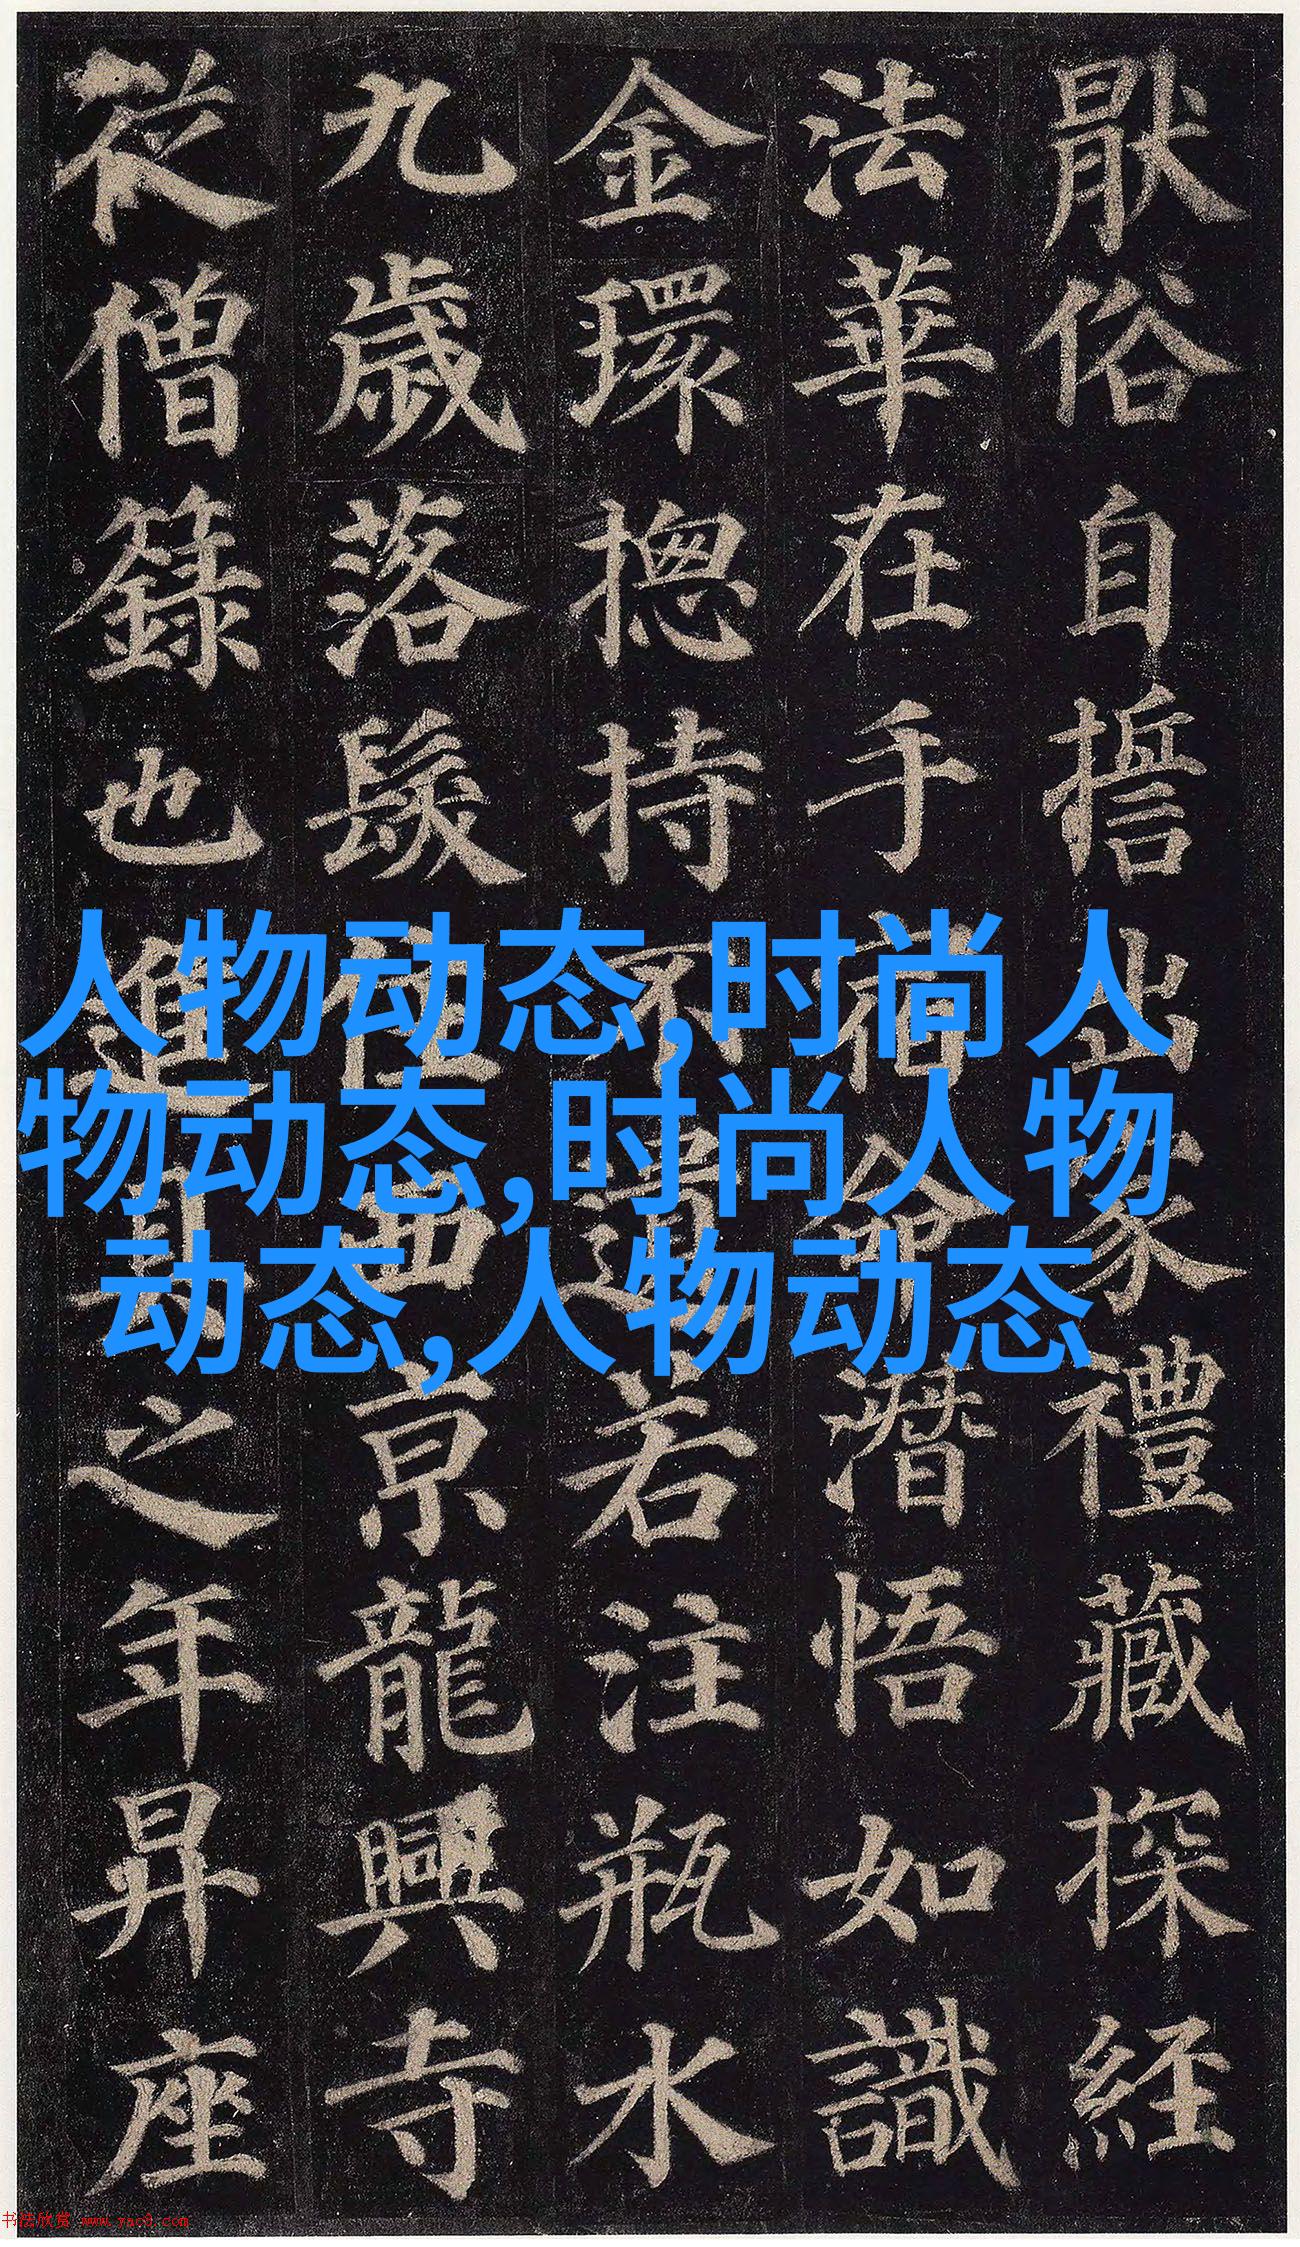 厭俗自誓出家禮藏探經
法華在手宿命潛悟如識
金環揔持不遺若注瓶水
九歲落髮住西京龍興寺
從僧籙也進具之年昇座
人物动态,时尚人
物动态,时尚人物
动态,人物动态
书法欣赏 www.yac8.com